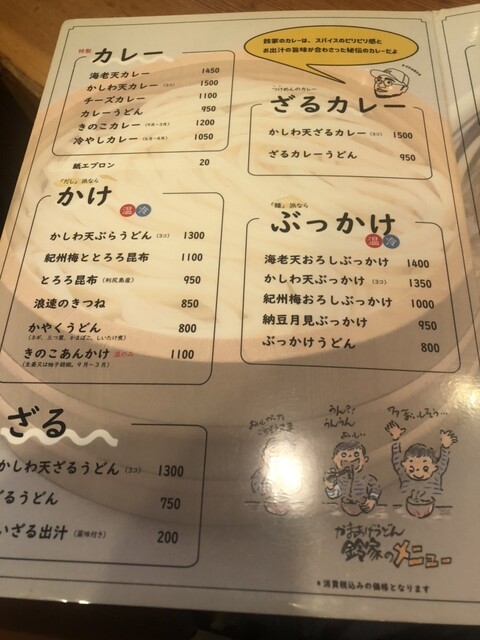 鈴家のカレーは、スパイスのピリピリ感と
お出汁の旨味が合わさった秘伝のカレーだよ
特製 カレー
海老天カレー 1450
かしわ天カレー (3コ) 1500
チーズカレー 1100
カレーうどん 950
きのこカレー (9月〜3月) 1200
冷やしカレー (5月〜9月) 1050
紙エプロン 20
つけめんのカレー
ざるカレー
かしわ天ざるカレー (3コ) 1500
ざるカレーうどん 950
「だし」派なら
かけ
温 冷
かしわ天ぷらうどん (3コ) 1300
紀州梅ととろろ昆布 1100
とろろ昆布 (利尻島産) 950
浪速のきつね 850
かやくうどん 800
(ネギ、三つ葉、かまぼこ、しいたけ煮)
きのこあんかけ 温のみ 1100
(生姜又は柚子胡椒、9月〜3月)
「麺」派なら
ぶっかけ
温 冷
海老天おろしぶっかけ 1400
かしわ天ぶっかけ (3コ) 1350
紀州梅おろしぶっかけ 1000
納豆月見ぶっかけ 950
ぶっかけうどん 800
ざる
かしわ天ざるうどん (3コ) 1300
ざるうどん 750
いざる出汁 (薬味付き) 200
うん!?
うんうん
かまあげうどん
鈴家のメニュー
*消費税込みの価格となります